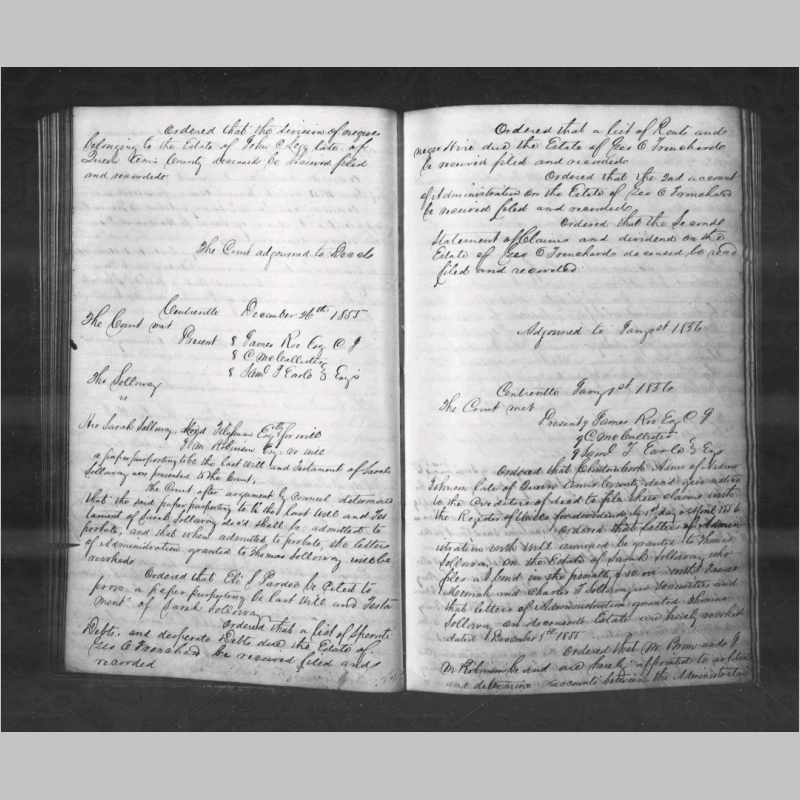 Ordered that the division of negroes
belonging to the Estate of John C Legg late of
Queen Ann's County deceased be received filed
and recorded
The Court adjourned to Decr 26
Centreville December 26th 1855
The Court met
Present James Roe Esq C J
C McCallister
Saml T Earle Esqrs
Tho Sollaway
vs
Mrs Sarah Sollaway Tilghman Esq for will
J M Robinson Esq vs will
a paper purporting to be the last will and Testament of Sarah
Sollaway was presented to the Court.
The Court after argument by counsel determined
that the said paper purporting to be the last Will and Tes
tament of Sarah Sollaway decd shall be admitted to
probate, and that when admitted to probate, the letters
of Administration granted to Thomas Sollaway will be
revoked
Ordered that Eli S Pardee be Cited to
prove a paper purporting be last Will and Testa
ment of Sarah Sollaway
Ordered that a list of Sperate
Debts, and desperate Debts due the Estate of
Geo C Trenchard be received filed and
recorded
Ordered that a list of Rents and
negro Hire due the Estate of Geo C Trenchard
be received filed and recorded
Ordered that the 2nd account
of Administration on the Estate of Geo C Trenchard
be received filed and recorded
Ordered that the Second
Statement of Claims and dividend on the
Estate of Geo C Trenchard deceased be recd
filed and recorded
Adjourned to Jany 1st 1856
Centreville Jany 1st 1856
The Court met
Present James Roe Esq C J
C McCallister
Saml T Earle Esqs
Ordered that Admr of
Johnson late of Queen Anns County decd give notice
to the Creditors of decd to file their claims with
the Register of Wills on or before 1st day of April 1856
Ordered that letters of Admin
istration with Will annexed be granted to Thomas
Sollaway on the Estate of Sarah Sollaway who
files a bond in the penalty of with James
Merrick and Charles T Sollaway as securities and
that letters of Administration granted Thomas
Sollaway on deceaseds Estate are hereby revoked
dated December 5th 1855
Ordered that M Brown and J
M Robinson be and are hereby appointed to
and determine accounts between the Administrator